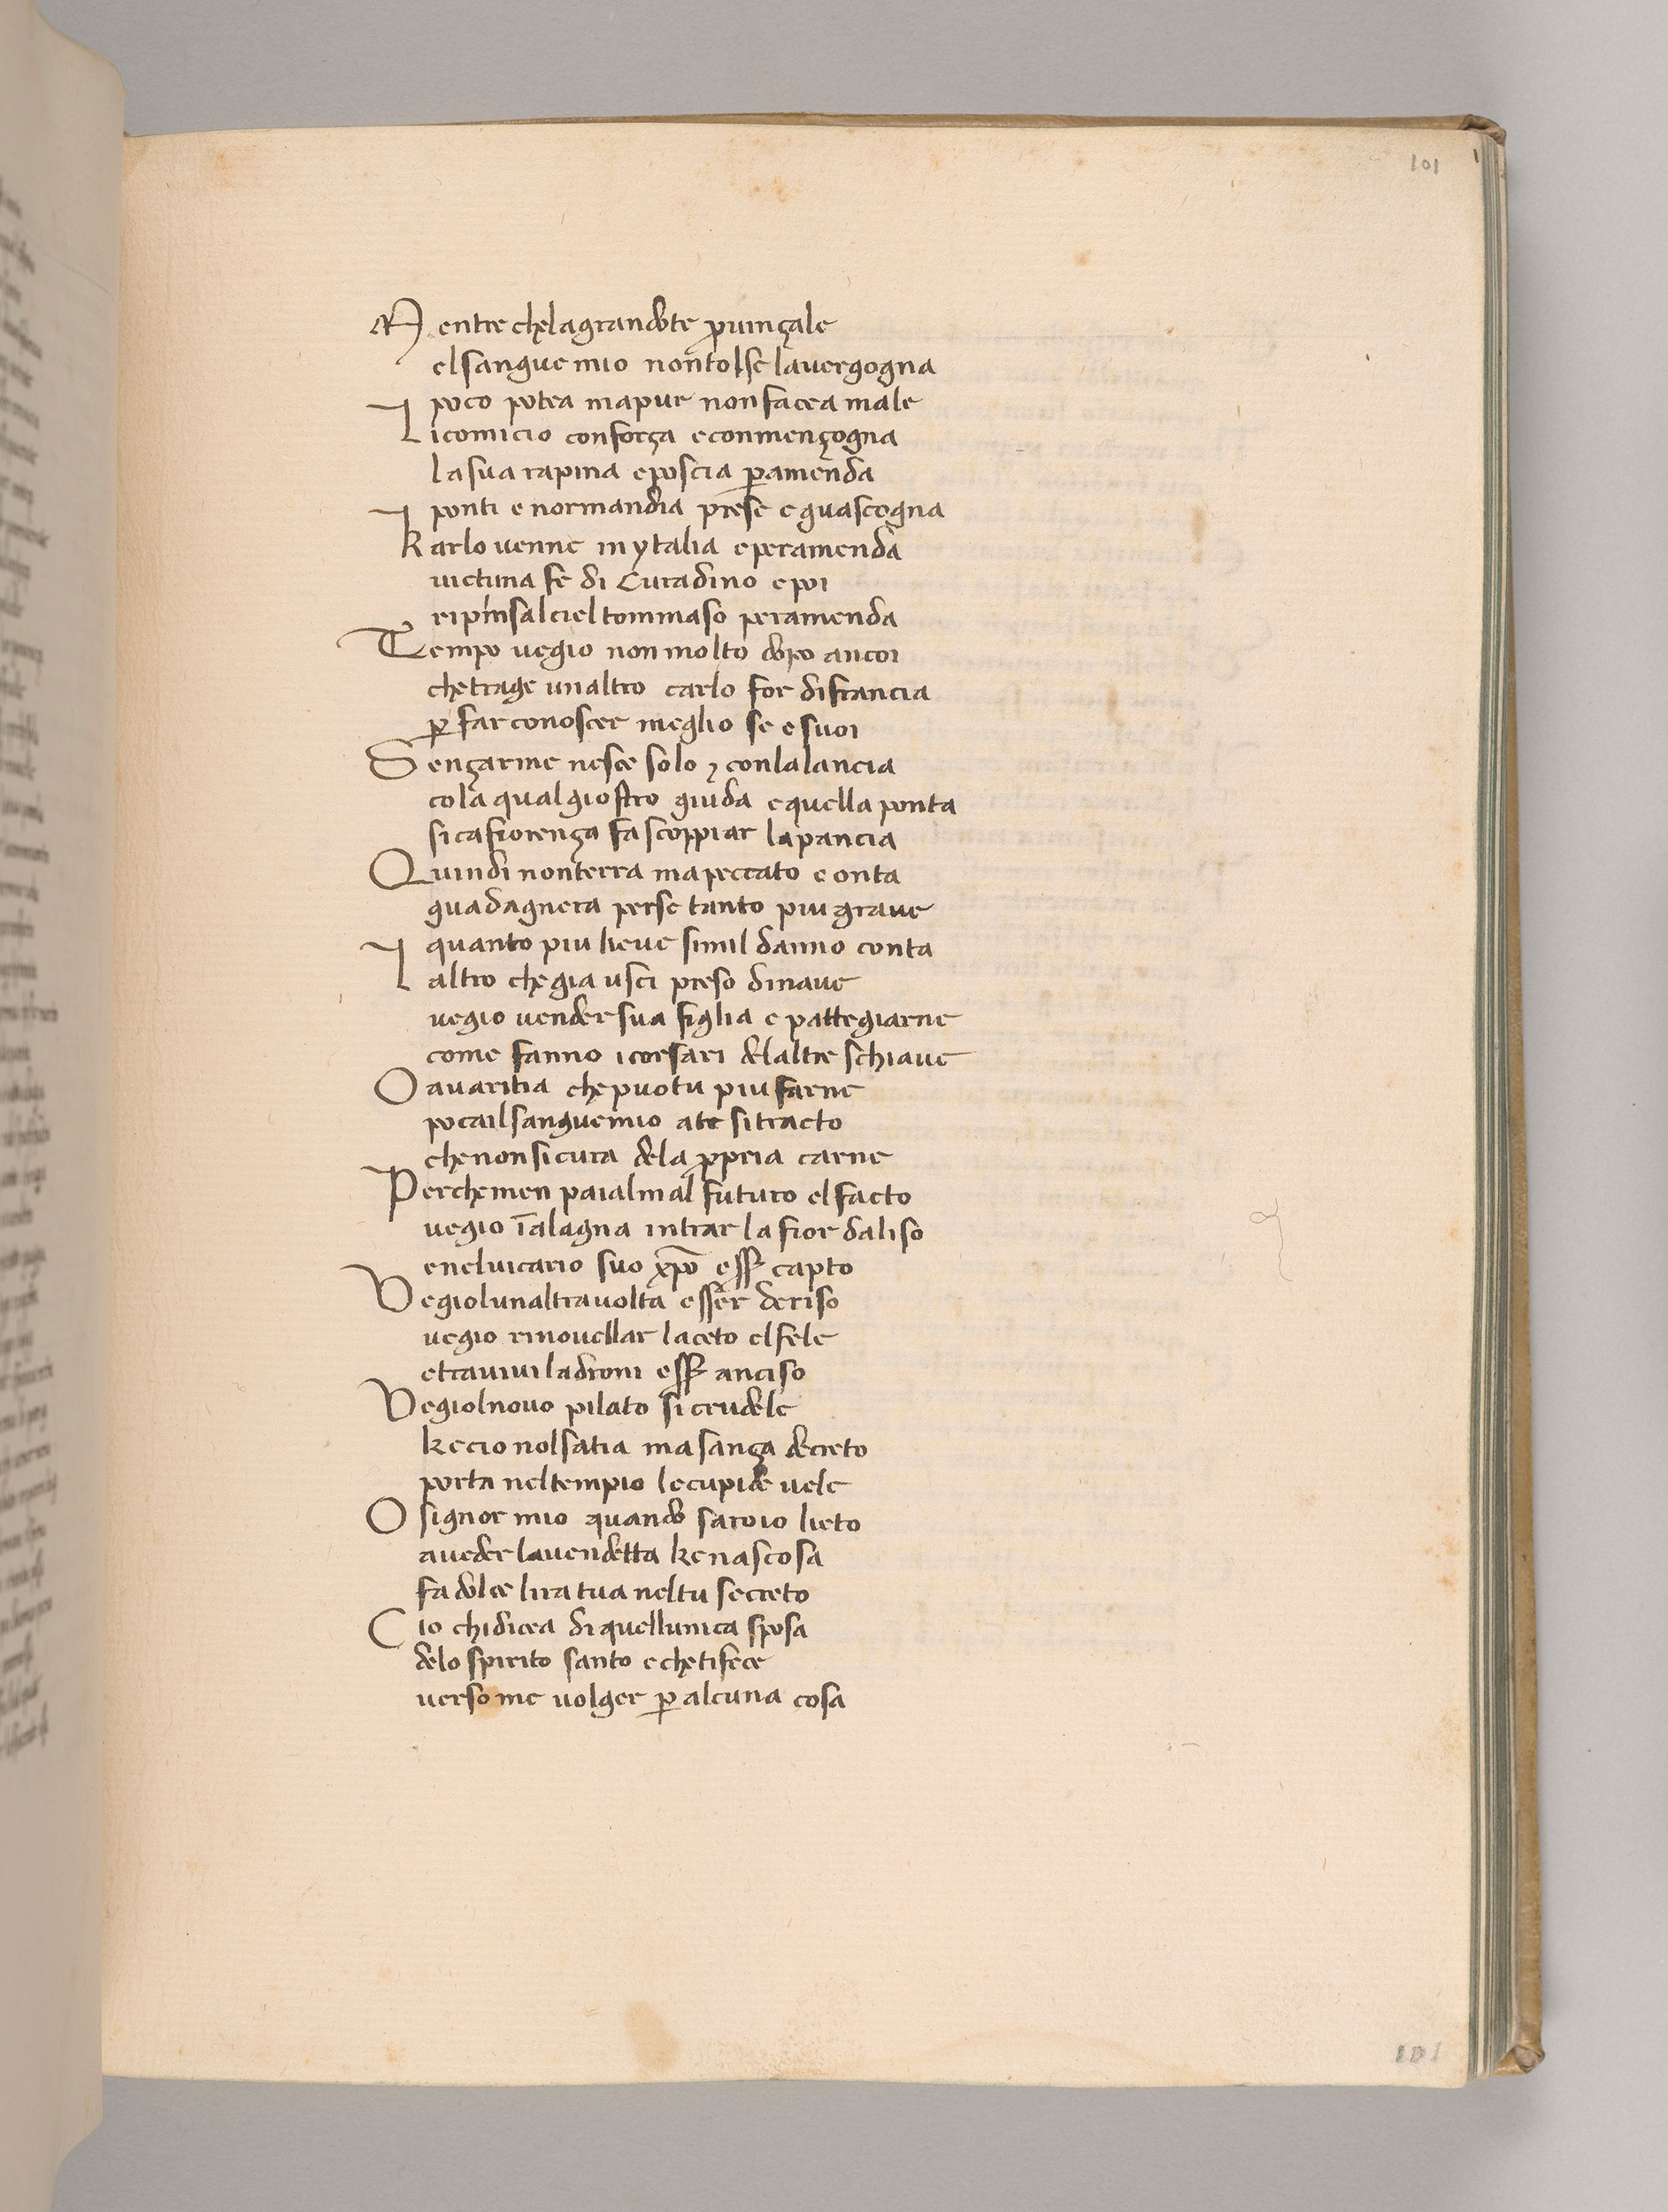 101
Mentre chela gran dote ꝓuinçale
el sangue mio non tolse la uergogna
poco potea ma pur non facea male
Li comicio con força e con mençogna
la sua rapina e poscia ꝑ amenda
ponti e normandia prese e guascogna
Karlo uenne in ytalia e per amenda
uictima fe di Curadino e poi
ripinsalciel tommaso per amenda
Tempo uegio non molto dopo ancoi
che trage unaltro carlo for di francia
ꝑ far conoscer meglio se e suoi
Sençarme nesce solo ⁊ conlalancia
cola qual giostro giuda e quella ponta
si ca fiorença fa scoppiar la pancia
Quindi non terra ma peccato e onta
guadagnera per se tanto piu graue
quanto piu lieue simil danno conta
Laltro che gia usci preso di naue
uegio uender sua figlia e pattegiarne
come fanno i corsari delaltre schiaue
O auaritia che puo tu piu farne
poca il sangue mio a te si tracto
che non si cura dela ꝓpria carne
Perche men paia il mal futuro el facto
uegio ī alagna intrar la fior daliso
e nel uicario suo xp̄o ess̄ capto
Vegiolunaltra uolta esser deriso
uegio rinouellar laceto el fele
e tra uiui ladroni ess̄ anciso
Vegiol nouo pilato si crudele
ke cio nol satia ma sança decreto
porta nel tempio le cupide uele
O signor mio quando saro io lieto
a ueder la uendetta ke nascosa
fa dolce lira tua nel tu secreto
Cio chi dicea di quellunica sposa
delo spirito santo e che ti fece
uerso me uolger ꝑ alcuna cosa
101